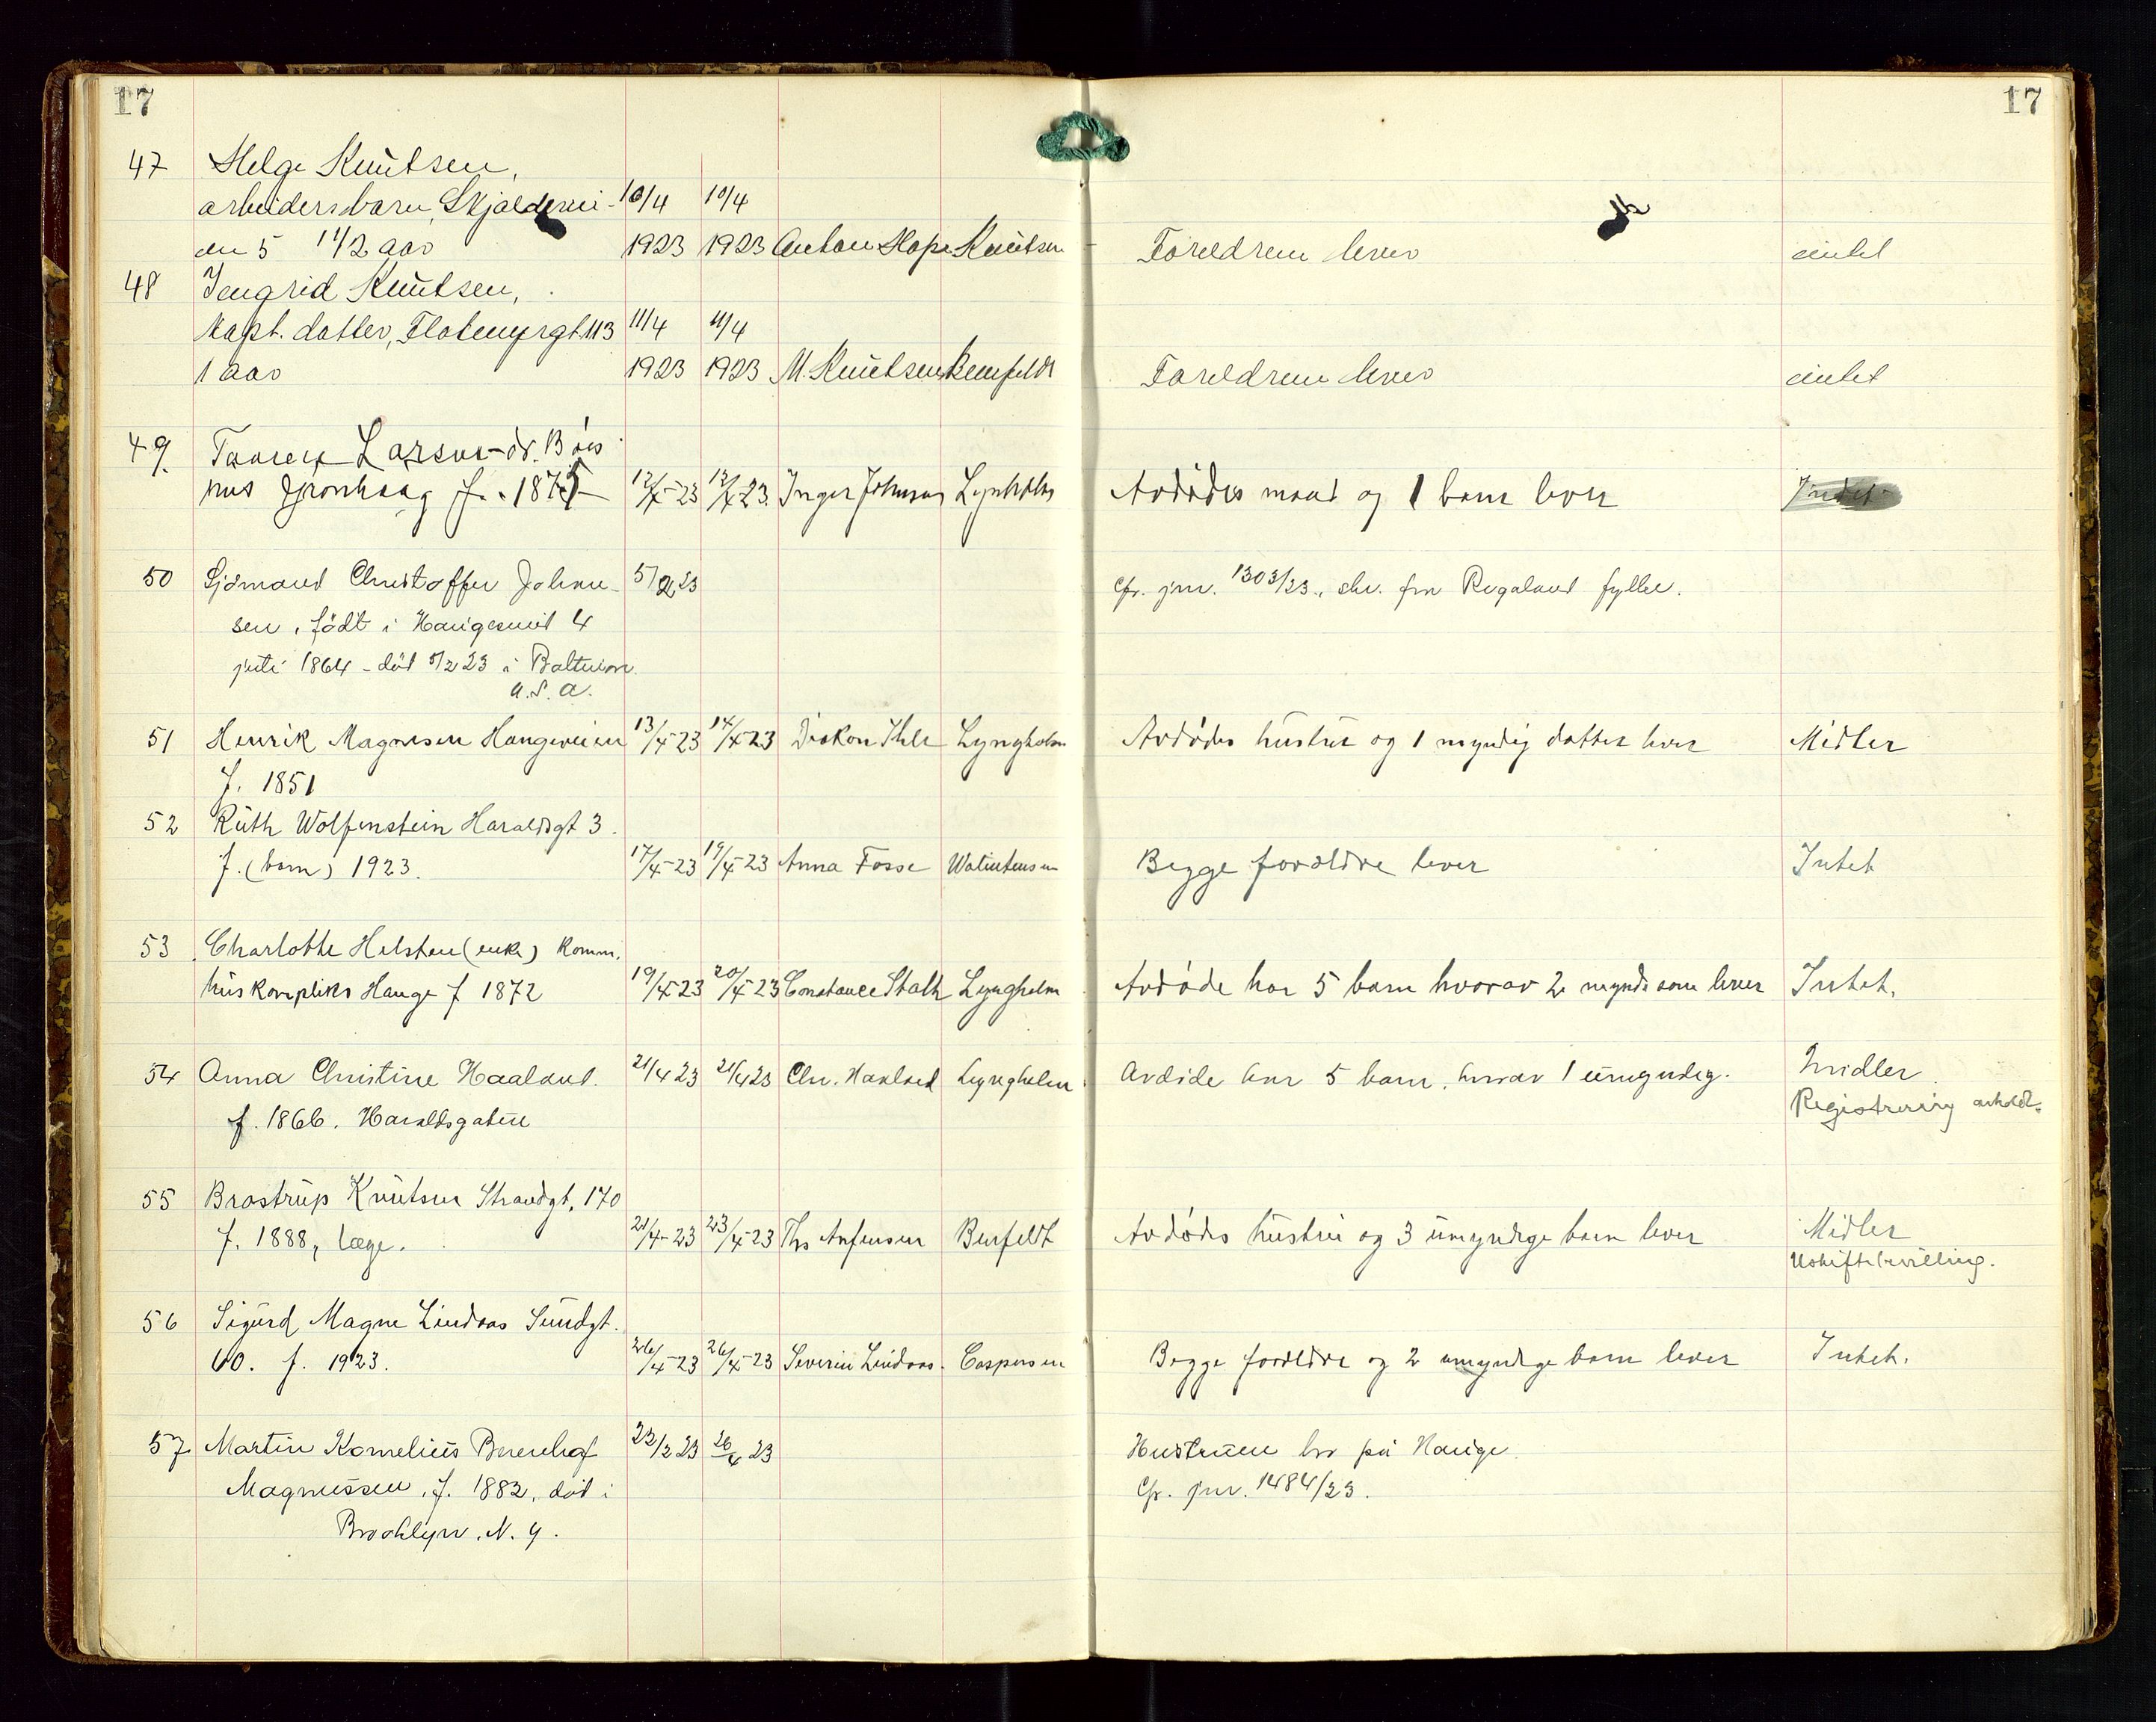 17
17
47 Helge Knutsen,
arbeidersbarn, Skjoldevei- 10/4 10/4
en 5 1 1/2 aar 1923 1923 Anton Hope Knutsen Foreldrene lever intet
48 Ingrid Knutsen,
Kapt. datter, Flotmyrgt. 113 11/4 11/4
1 aar 1923 1923 M. Knutsen Foreldrene lever intet
49. Larsen
f. 1875 12/4-23 12/4-23. Inger Johnsen Lyngholm Avdødes mand og 1 barn lever Intet
50 Sjömand Christoffer Johan- 5/2 23 Cfr. jnr. 1303/23., skr. fra Rogaland fylke.
sen, födt i Haugesund 4
juli 1864 - död 5/2 23 i Baltimore
U.S.A.
51 Henrik Magnesen Haugeveien 13/4-23 14/4-23 Diakon Ihle Lyngholm Avdødes hustru og 1 myndig datter lever Midler
f. 1851
52 Ruth Wolfenstein Haraldsgt 3.
f. (barn) 1923. 17/4-23 19/4-23 Anna Fosse Begge forældre lever Intet
53 Charlotte Helsten (enke) Komm.
hus Hauge f 1872 19/4-23 20/4-23 Constance Lyngholm Avdøde har 5 barn hvorav 2 mynd. som lever Intet.
54 Anna Christine Haaland. 21/4 23 21/4 23 Chr. Haaland Lyngholm Avdøde har 5 barn, hvorav 1 umyndig. Midler.
f. 1866. Haraldsgaten Registrering avholdt.
55 Brostrup Knutsen Strandgt. 170
f. 1888, læge. 21/4-23 23/4-23 Ths Anfensen Benfeldt Avdødes hustru og 3 umyndige barn lever Midler
Uskiftebevilling.
56 Sigurd Magne Lindaas Sundgt.
60. f. 1923. 26/4-23 26/4-23 Severin Lindaas. Caspersen Begge forældre og 2 umyndige barn lever Intet.
57. Martin Kornelius Berenhof 22/2 23 26/4 23 Hustruen bor på Hauge.
Magnussen, f. 1882, död i Cfr. jnr. 1484/23.
Brooklyn, N. Y.